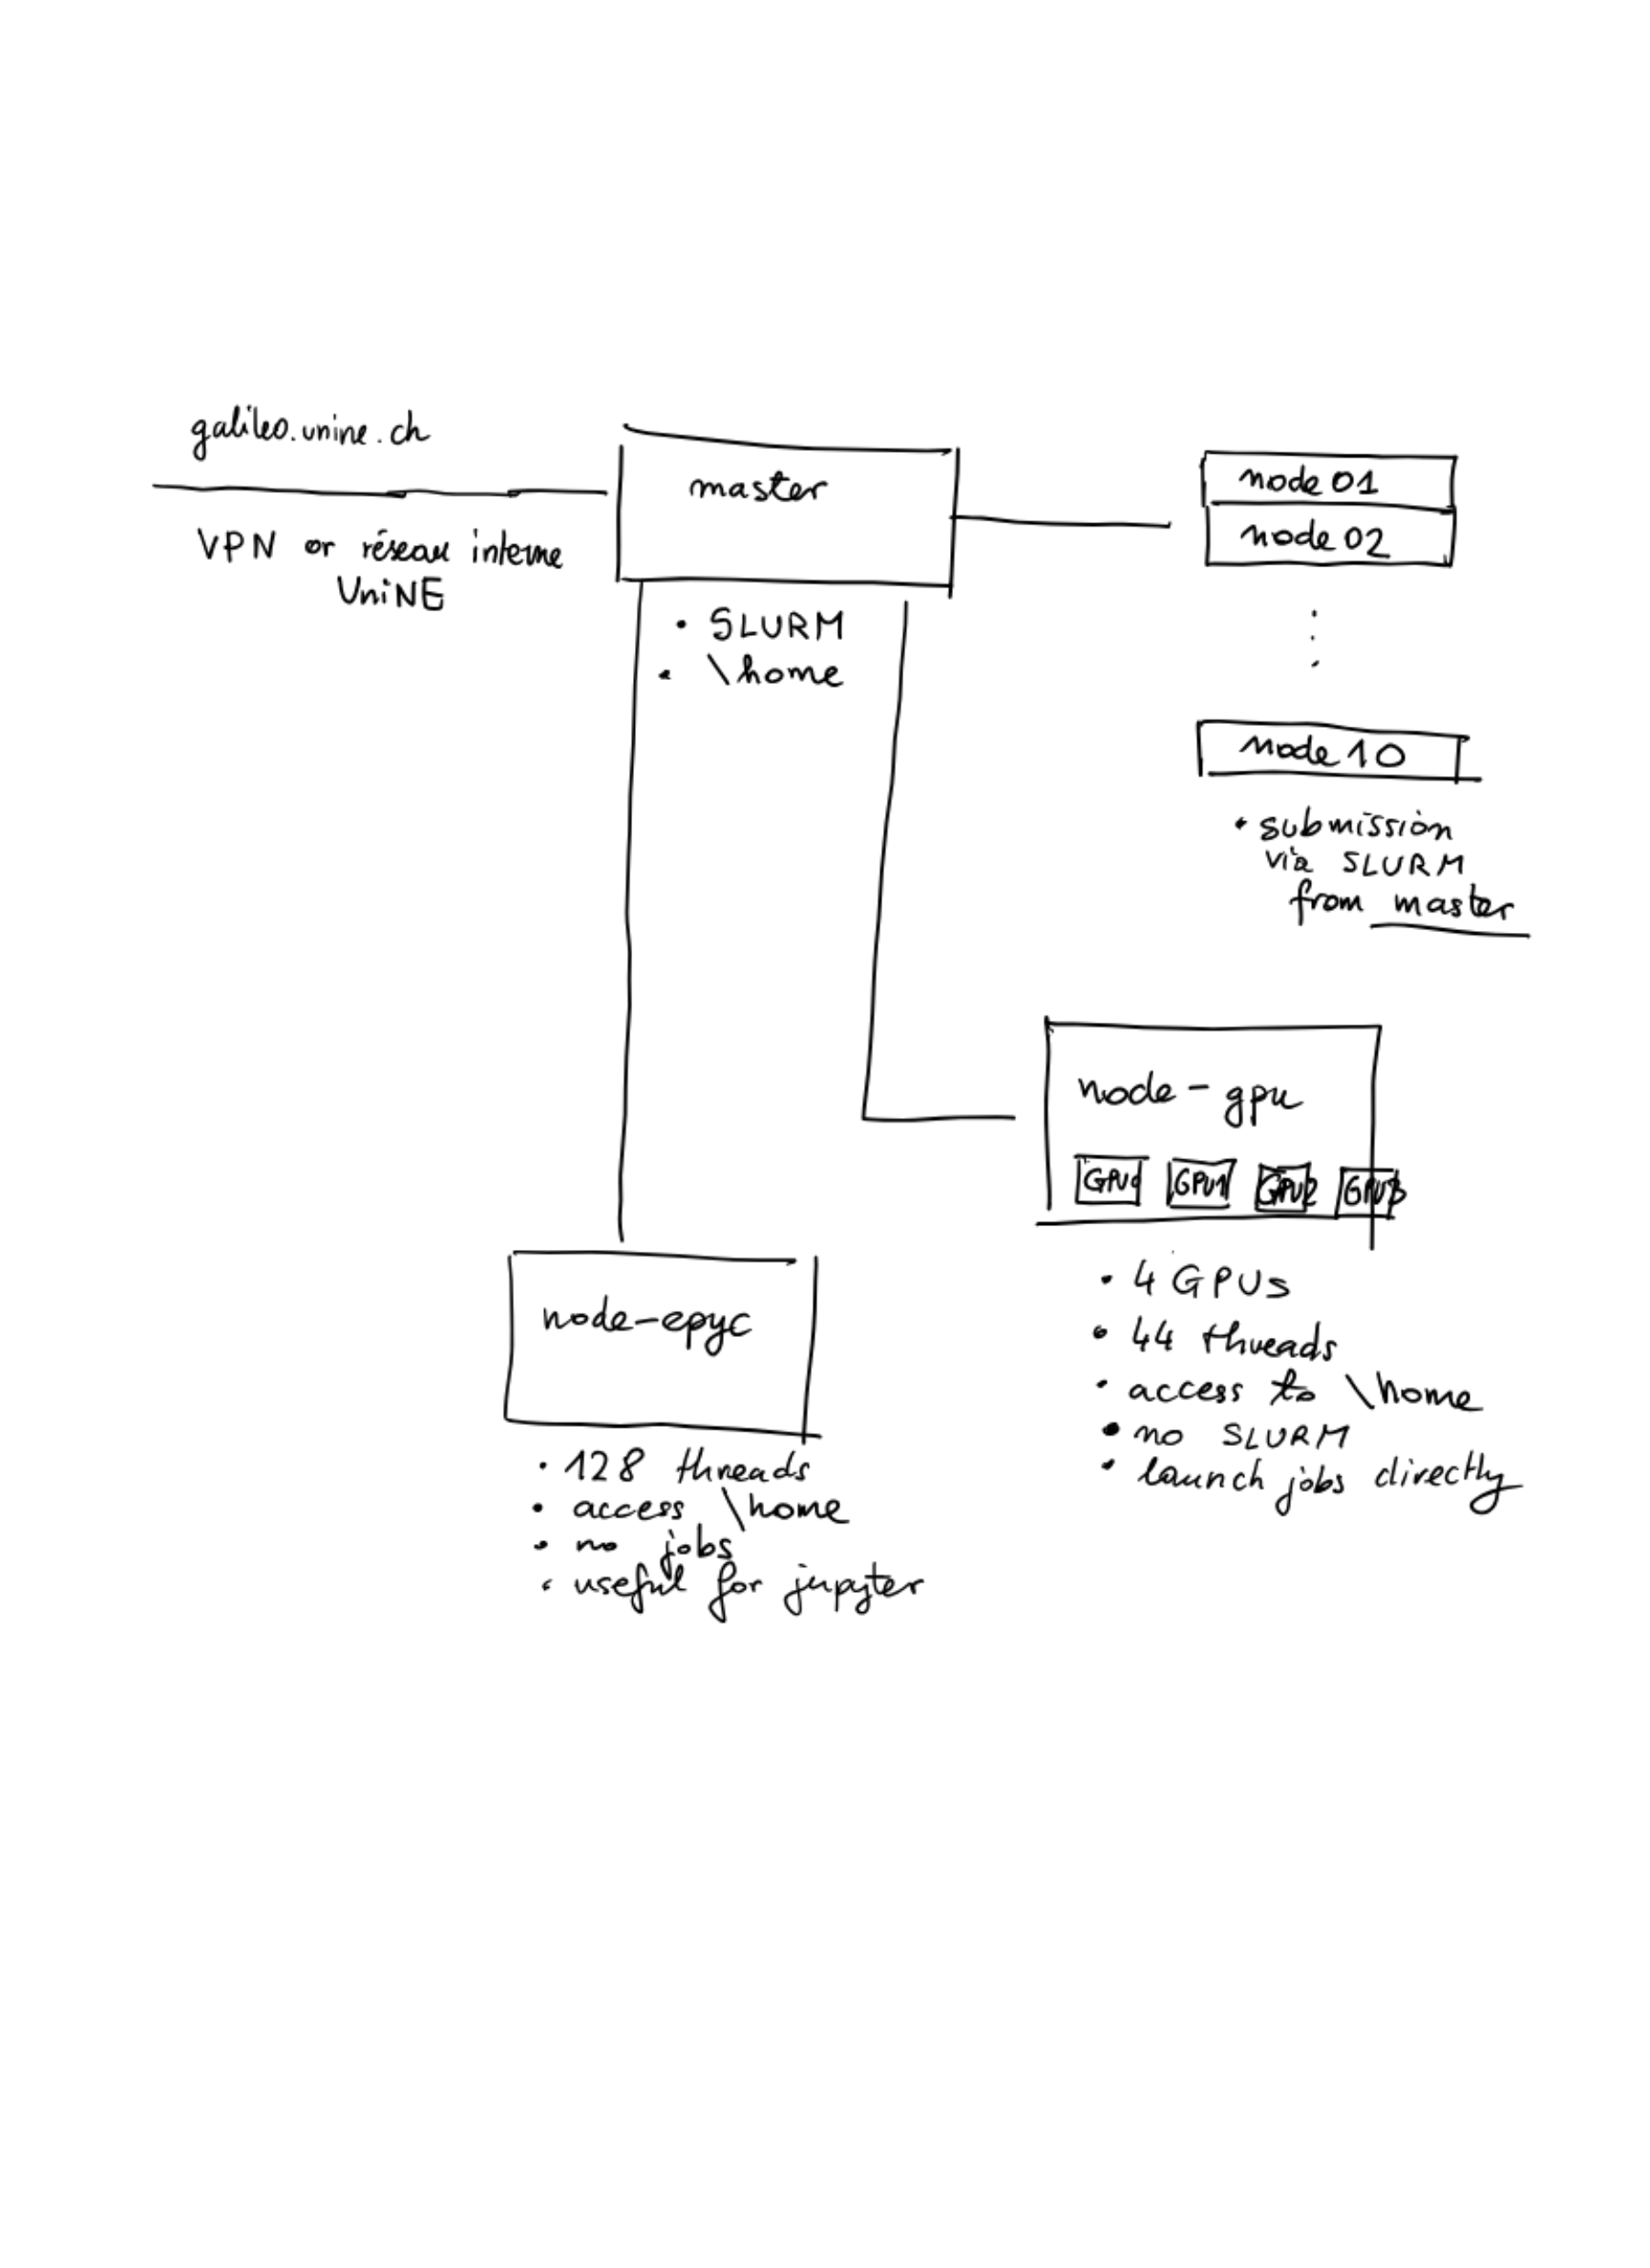 galileo.unine.ch
VPN or réseau interne
UniNE
master
• SLURM
• \home
node 01
node 02
node 10
• submission
via SLURM
from master
node-gpu
GPU0 GPU1 GPU2 GPU3
• 4 GPUs
• 44 threads
• access to \home
• no SLURM
• launch jobs directly
node-epyc
• 128 threads
• access \home
• no jobs
• useful for jupyter